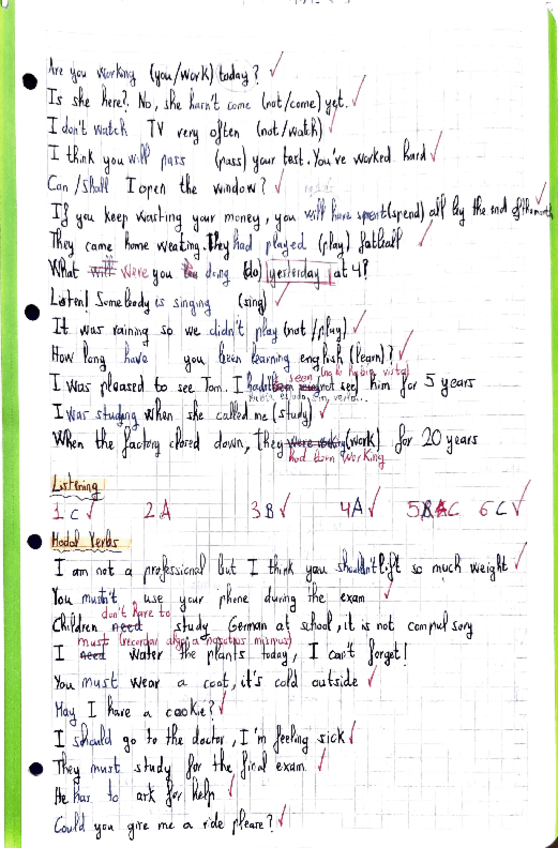 Are you working (you/work) today? ✓
Is she here? No, she hasn't come (not/come) yet. ✓
I don't watch TV very often (not/watch) ✓
I think you will pass (pass) your test. You've worked hard ✓
Can/Shall I open the window? ✓
If you keep wasting your money, you will have spent (spend) all by the end of the month ✓
They came home sweating. They had played (play) fotball ✓
What were you doing (do) yesterday at 4?
Listen! Somebody is singing (sing) ✓
It was raining so we didn't play (not/play) ✓
How long have you been learning english (learn)? ✓
I was pleased to see Tom. I hadn't seen (not see) him for 5 years
I was studing when she called me (study) ✓
When the factory closed down, they (work) for 20 years
had been working
Listening
1 C ✓ 2 A 3 B ✓ 4 A ✓ 5 C 6 C ✓
Modal Verbs
I am not a professional but I think you shouldn't lift so much weight ✓
You mustn't use your phone during the exam ✓
don't have to
Children need study German at school, it is not compulsory
must (recordar algo a nosotros mismos)
I need water the plants today, I can't forget!
You must wear a coat, it's cold outside ✓
May I have a cookie? ✓
I should go to the doctor, I'm feeling sick ✓
They must study for the final exam. ✓
He has to ask for help ✓
Could you give me a ride please? ✓